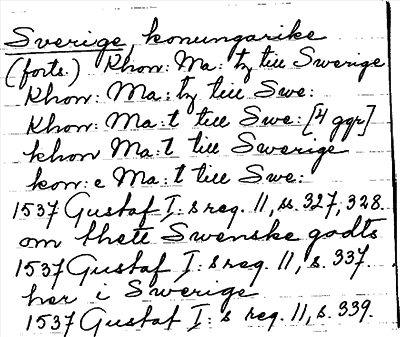 Sverige, konungarike
(forts.) Khon: Ma: tz till Swerige
Khon: Ma: tz till Swe:
Khon: Ma: t till Swe: [4 ggr]
khon Ma: t till Swerige
kon: e Ma: t till Swe:
1537 Gustaf I: s reg. 11, ss. 327, 328.
om thette Swenske godts
1537 Gustaf I: s reg. 11, s. 337.
her i Swerige
1537 Gustaf I: s reg. 11, s. 339.